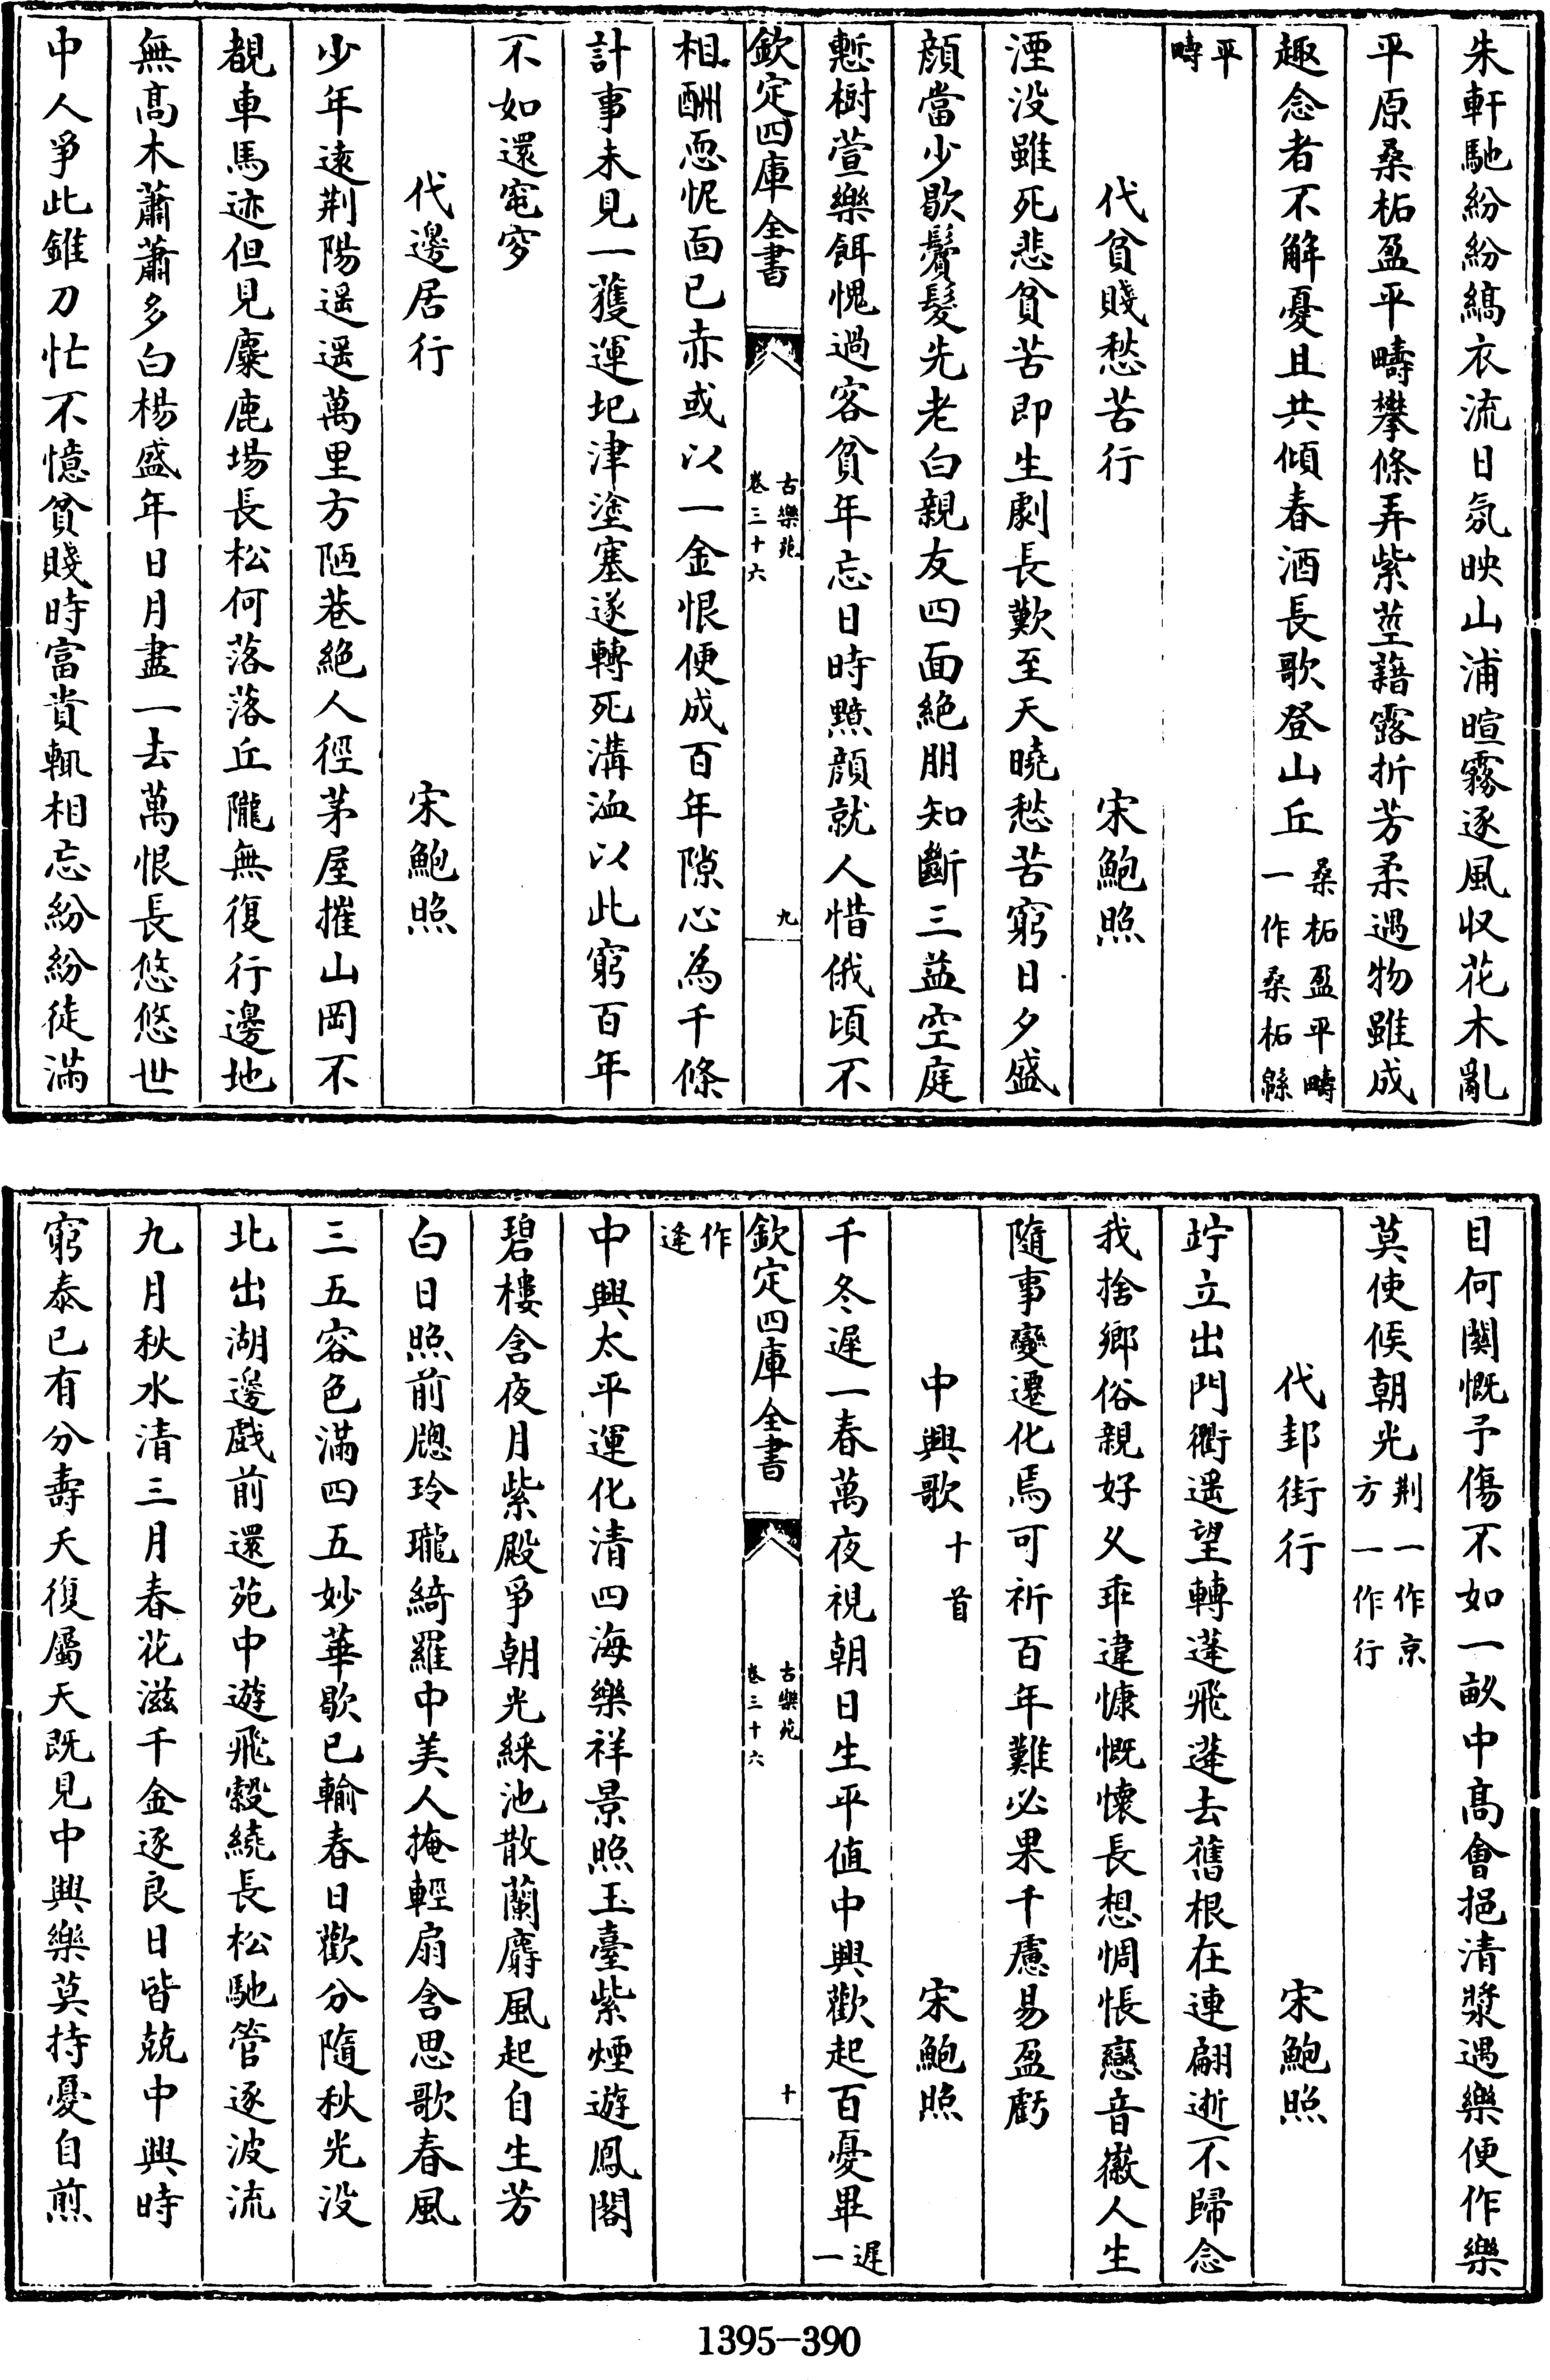 朱軒馳紛紛縞衣流日氛映山浦暄霧逐風收花木亂
平原桑柘盈平疇攀條弄紫莖藉露折芳柔遇物雖成
趣念者不解憂且共傾春酒長歌登山丘桑柘盈平疇一作桑柘緜
平疇
代貧賤愁苦行　宋鮑照
湮没雖死悲貧苦即生劇長歎至天曉愁苦窮日夕盛
顔當少歇鬢髮先老白親友四面絶朋知斷三益空庭
慙樹萱樂餌愧過客貧年忘日時黯顔就人惜俄頃不
欽定四庫全書　古樂苑卷三十六　九
相酬恧怩面已赤或以一金恨便成百年隙心為千條
計事未見一獲運圯津塗塞遂轉死溝洫以此窮百年
不如還窀穸
代邊居行　宋鮑照
少年逺荆陽遥遥萬里方陋巷絶人徑茅屋摧山岡不
覩車馬迹但見麋鹿塲長松何落落丘隴無復行邊地
無髙木蕭蕭多白楊盛年日月盡一去萬恨長悠悠世
中人爭此錐刀忙不憶貧賤時富貴輒相忘紛紛徒滿
目何關慨予傷不如一畝中髙會挹清漿遇樂便作樂
莫使候朝光荆一作京方一作行
代邽街行　宋鮑照
竚立出門衢遥望轉蓬飛蓬去舊根在連翩逝不歸念
我捨鄉俗親好乆乖違慷慨懷長想惆悵戀音徽人生
隨事變遷化焉可祈百年難必果千慮易盈虧
中興歌十首　宋鮑照
千冬遲一春萬夜視朝日生平值中興歡起百憂畢遲一
欽定四庫全書　古樂苑卷三十六　十
作逢
中興太平運化清四海樂祥景照玉臺紫煙遊鳳閣
碧樓含夜月紫殿爭朝光綵池散蘭麝風起自生芳
白日照前牕玲瓏綺羅中美人掩輕扇含思歌春風
三五容色滿四五妙華歇已輸春日歡分隨秋光没
北出湖邊戲前還苑中遊飛縠繞長松馳管逐波流
九月秋水清三月春花滋千金逐良日皆兢中興時
窮泰已有分壽夭復屬天既見中興樂莫持憂自煎
1395-390